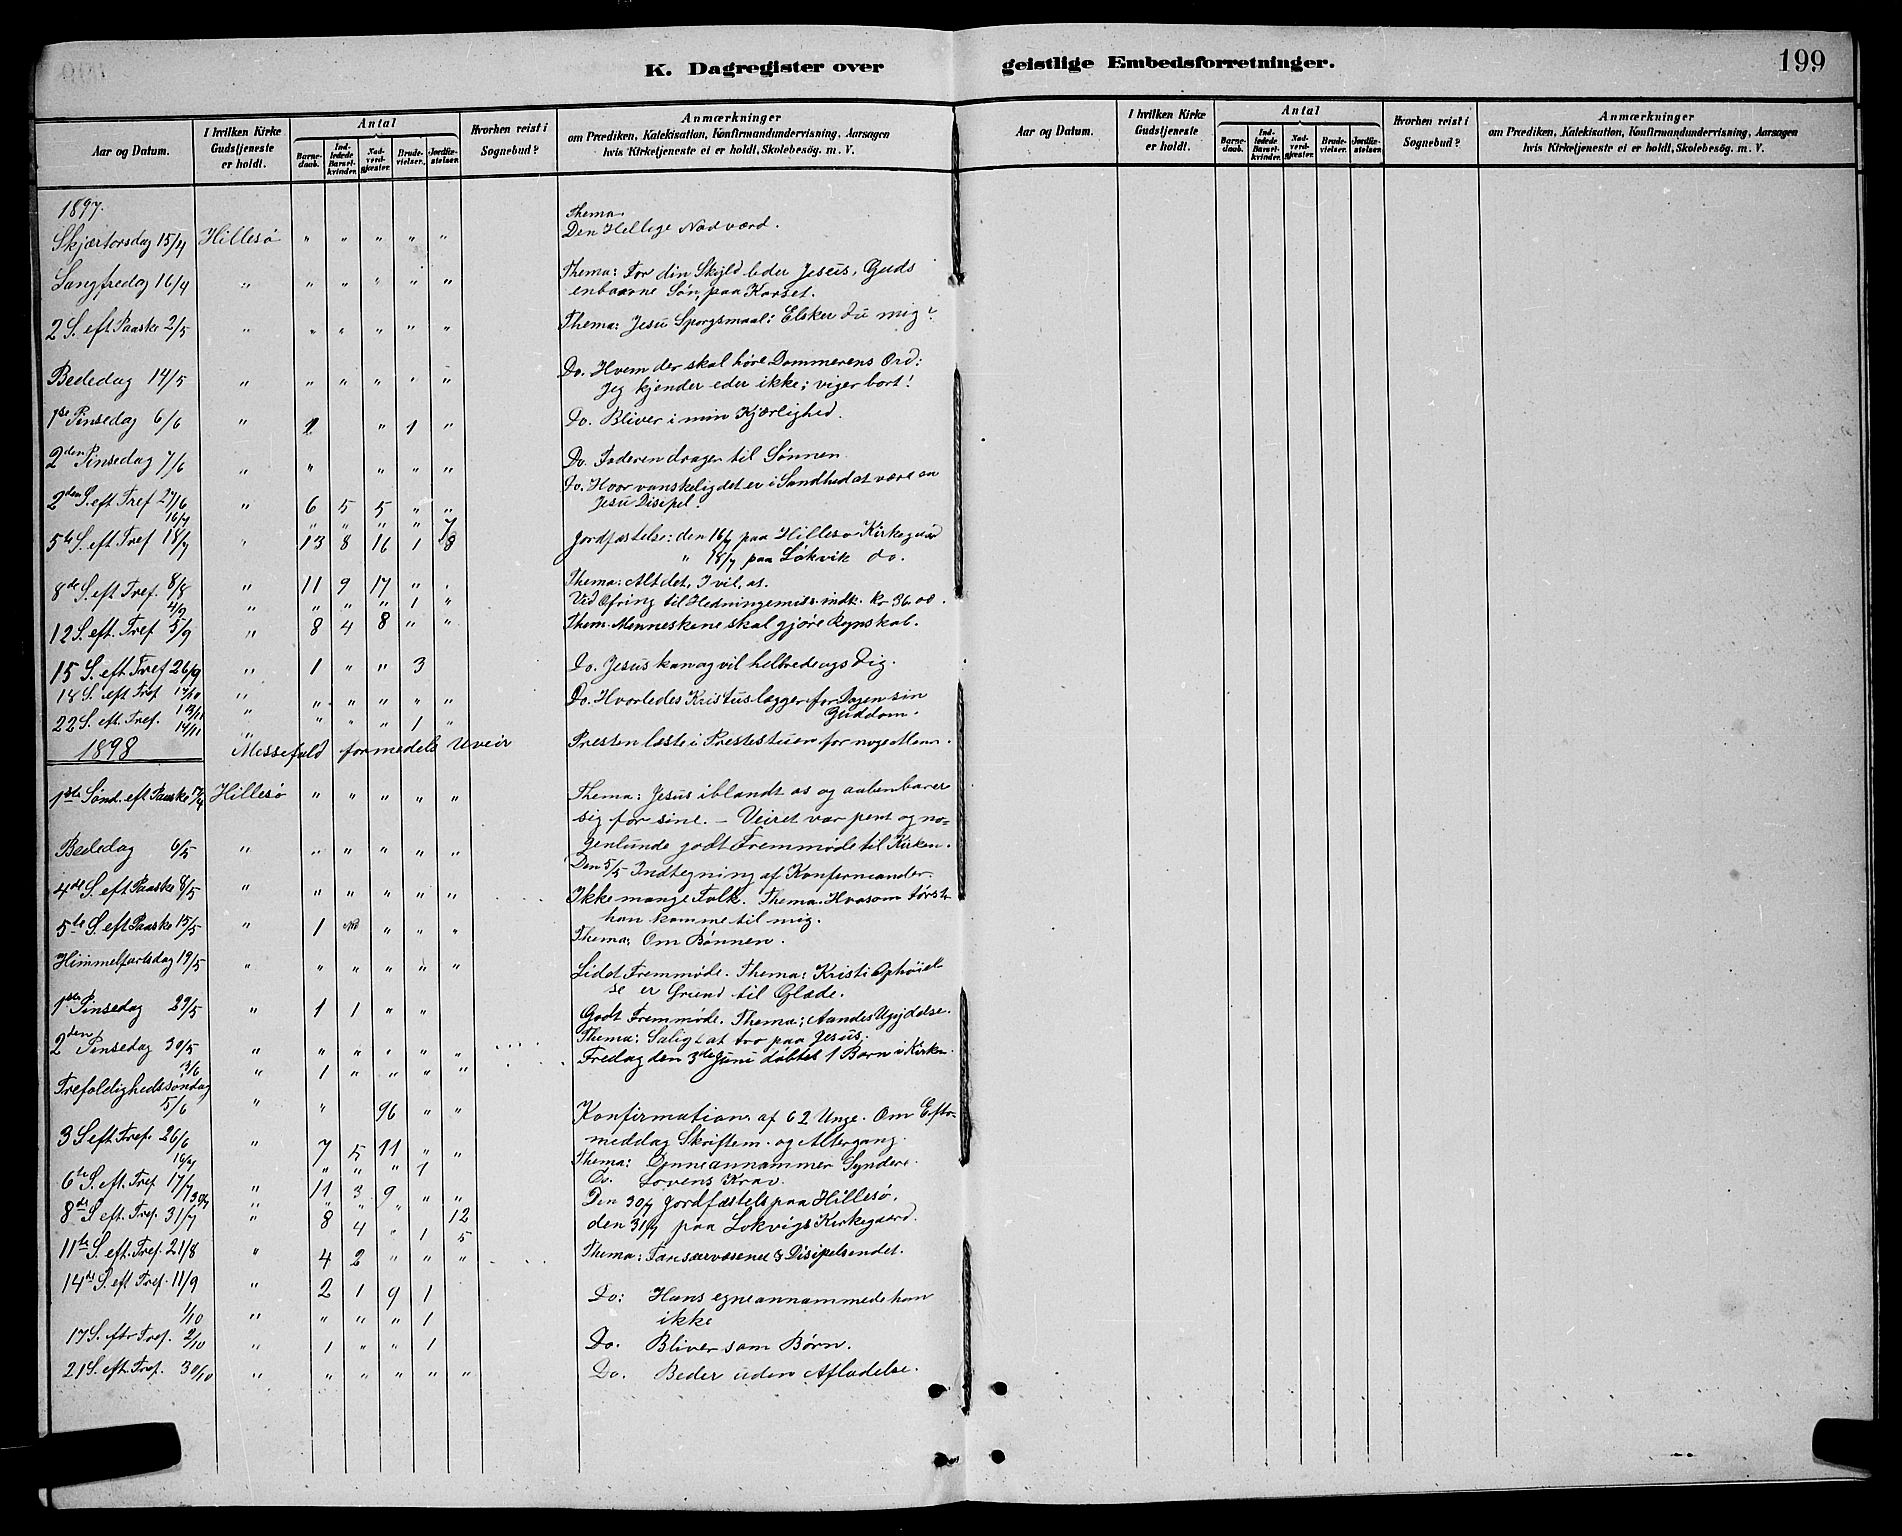 K. Dagregister over geistlige Embedsforretninger. 199
Aar og Datum. I hvilken Kirke Gudstjeneste er holdt. Antal Barnedaab. Indledede Barselkvinder. Nadverdgjæster. Brudevielser. Jordfæstelser. Hvorhen reist i Sognebud? Anmærkninger om Prædiken, Katekisation, Konfirmandundervisning, Aarsagen hvis Kirketjeneste ei er holdt, Skolebesøg. m. V.
Aar og Datum. I hvilken Kirke Gudstjeneste er holdt. Antal Barnedaab. Indledede Barselkvinder. Nadverdgjæster. Brudevielser. Jordfæstelser. Hvorhen reist i Sognebud? Anmærkninger om Prædiken, Katekisation, Konfirmandundervisning, Aarsagen hvis Kirketjeneste ei er holdt, Skolebesøg. m. V.
1897. Thema
Skjærtorsdag 15/4 Hillesø " " " " " Den Hellige Nadværd.
Langfredag 16/4 " " " " " " Thema: For din Skyld leder Jesus, Guds
enbaarne Søn, paa Korset.
2 S. eft Paaske 2/5 " " " " " " Thema: Jesu Sporgsmaal: Elsker du mig?
Bededag 14/5 " " " " " " Do. Hvem der skal høre Dommerens Ord:
Jeg kjender eder ikke; viger bort!
1ste Pinsedag 6/6 " 1 " 1 " Do. Bliver i min Kjærlighed.
2den Pinsedag 7/6 " " " " " Do. Faderen drager til Sønnen
Do. Hvor vanskelig det er i Sandhed at være en
2den S. eft Tref 27/6 " 6 5 5 " " Jesu Disipel.
16/7 " " " " 7
5te S. eft Tref 18/7 " 13 8 16 1 8 Jordfæstelse: den 16/7 paa Hillesø Kirkegaard
" 18/7 paa Løkvik do.
8de S. eft Tref. 8/8 " 11 9 17 " " Thema: Alt det, I vil, at.
4/9 " " " " 1 " Ved Ofring til Hedningemiss. indk. Kr 36.00.
12 S. eft. Tref 5/9 " 8 4 8 " " Them. Menneskene skal gjøre Regnskab.
15 S. eft Tref 26/9 " 1 " " 3 Do. Jesus kan og vil helbrede ogs Dig.
18 S. eft Tref 17/10 " " " " " " Do. Hvorledes Kristus lægger for Dagen sin
13/11 " " " " 1 " Guddom.
22 S. eft. Tref. 14/11 Messefald formedels Uveir Presten læste i Prestestuen for noge Menn.
1898
1ste Sønd. eft Paaske 17/4 Hillesø " " " " " Thema: Jesus iblandt os og aabenbarer
sig for sine. – Veiret var pent og no=
Bededag 6/5 " " " " " " genlunde godt Fremmøde til Kirken.
Den 5/5 Indtegning af Konfirmander.
4de S. eft Paaske 8/5 " " " " " " Ikke mange Folk. Thema. Hvosom tørste
han komme til mig.
5te S. eft Paaske 15/5 " 1 " " " Thema: Om Bønnen.
Himmelfartsdag 19/5 " " " " " " Lidet Fremmøde. Thema: Kristi Ophøiel=
se er Grund til Glæde.
1ste Pinsedag 29/5 " 1 1 " " Godt Fremmøde. Thema: Aandes Ugydelse.
2den Pinsedag 30/5 " " " " " " Thema: Saligt at tro paa Jesus.
3/6 " 1 " " " " Fredag den 3de Juni døbtes 1 Barn i Kirken.
Trefoldighedssøndag
5/6 " " 96 " " Konfirmation af 62 Unge. Om Efter=
middag Skriftem. og Altergang.
3 S eft Tref. 26/6 " 7 5 11 " " Thema: Denne annammer Syndere.
16/7 " " " 1
6te S. eft. Tref 17/7 " 11 3 9 " " Do. Lovens Krav.
30/7 " " " " 12 Den 30/7 Jordfæstels paa Hillesø,
8de S eft. Tref. 31/7 " 8 4 " 1 5 den 31/7 paa Lokvigs Kirkegaard.
11te S. eft Tref. 21/8 " 4 2 " " " Thema: Farisærvæsenet & Disipelsindet.
14de S. eft Tref. 11/9 " 2 1 9 1 Do: Hans egne annammede han
1/10 " " " " 1 ikke
17 S. eftr Tref. 2/10 " 1 " " 1 Do. Bliver som Børn.
21 S. eft. Tref. 30/10 " " " " " " Do. Beder uden Afladelse.